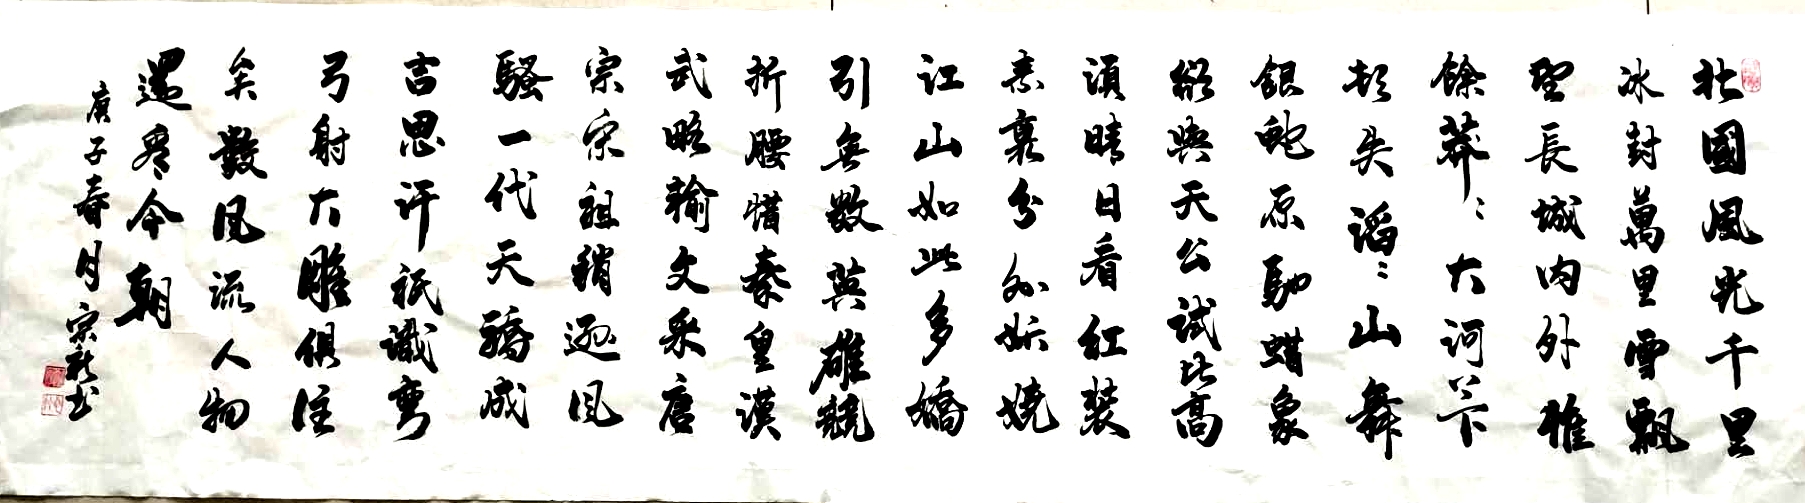 北國風光千里
冰封萬里雪飄
望長城内外惟
餘莽〻大河上下
頓失滔〻山舞
銀蛇原馳蜡象
欲與天公試比高
須晴日看紅裝
素裹分外妖嬈
江山如此多嬌
引無數英雄競
折腰惜秦皇漢
武略輸文采唐
宗宋祖稍遜風
騷一代天驕成
吉思汗祇識彎
弓射大雕俱往
矣數風流人物
還看今朝
庚子春月宗书